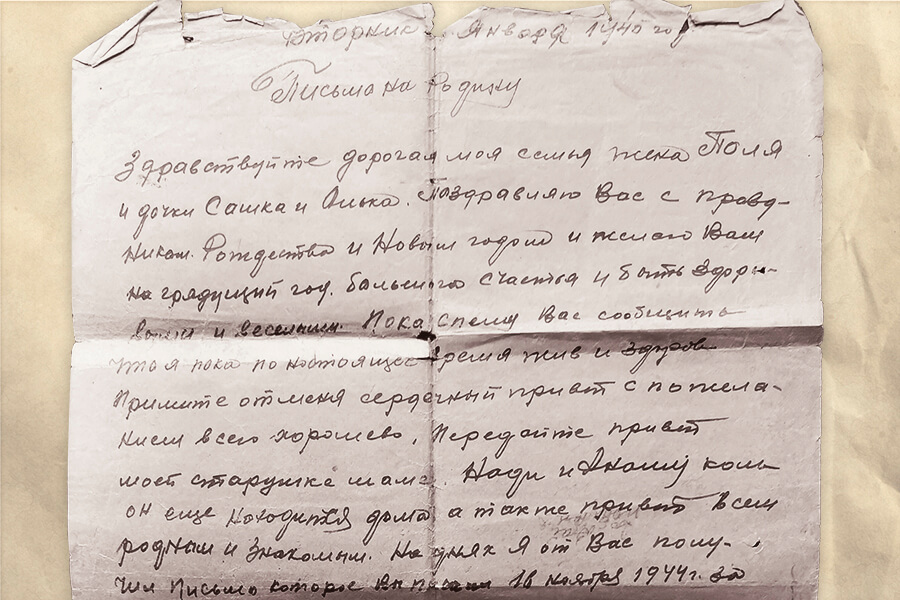 Вторник Января 1945 год
Письмо на Родину
Здравствуйте дорогая моя семья жена Поля
и дочки Сашка и Анька. Поздравляю Вас с празд-
ником. Рождества и Новым годом и желаю Вам
на грядущий год. большого счастья и быть здоро-
выми и веселыми. Пока спешу Вас сообщить
что я пока по настоящее время жив и здоров
Примите от меня сердечный привет с пожела-
нием всего хорошево. Передайте привет
моей старушке маме. Нади и коль
он еще находится дома а также привет всем
родным и знакомым. На днях я от Вас полу-
чил письмо которое Вы писали 16 ноября 1944г. за